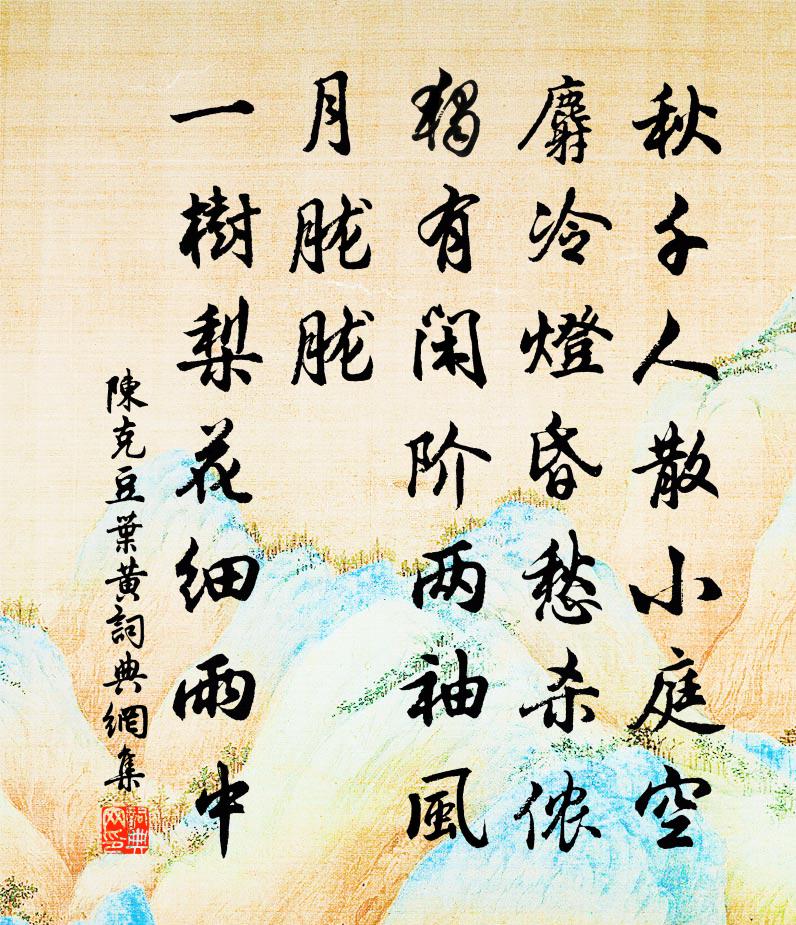 秋千人散小庭空
麝冷燈昏愁杀侬
獨有闲阶两袖風
月朧朧
一樹梨花細雨中
陳克豆葉黃詞典網集